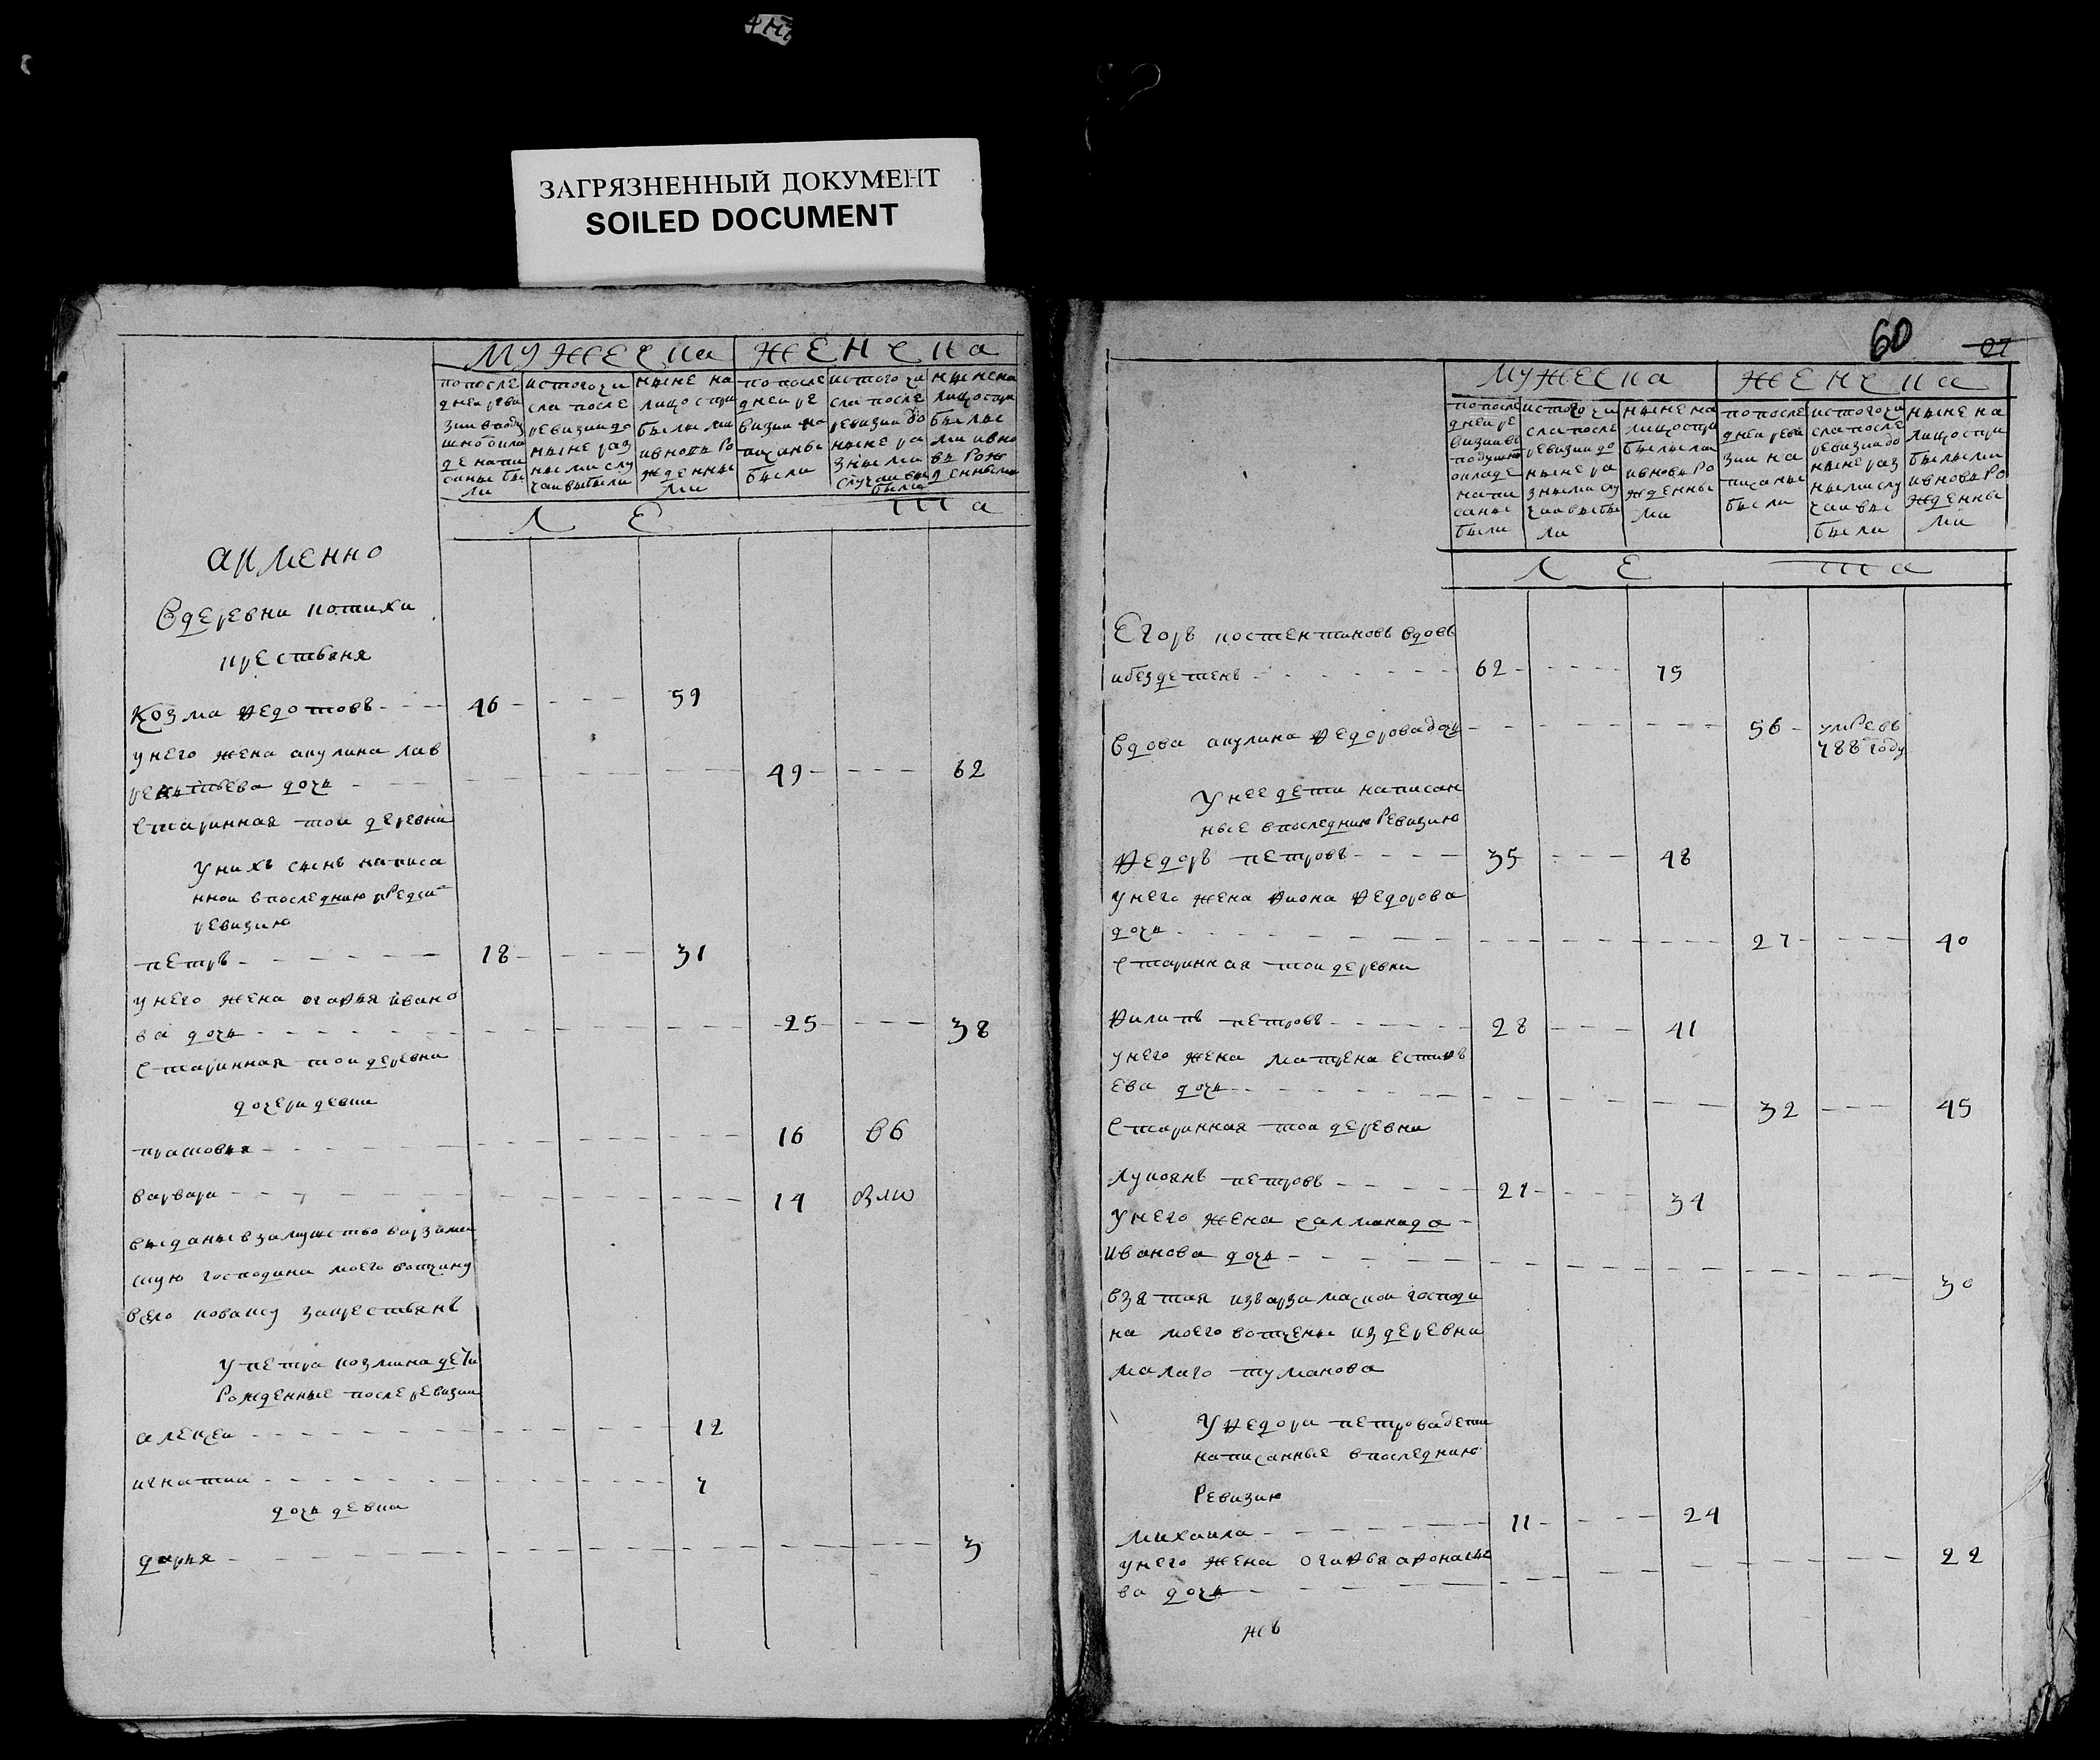 ЗАГРЯЗНЕННЫЙ ДОКУМЕНТ
SOILED DOCUMENT
мужеска женска
по после
дней реви
зии в поду
шно окла
де напи
саные бы
ли
ис того чи
сла после
ревизии до
ныне раз
ными слу
чаи выбыли
ныне на
лицо с при
былыми
и вновь ро
жденны
ми
по после
дней ре
визии на
писаны
были
ис того чи
сла после
ревизии до
ныне ра
зными
случаи вы
были
ныне на
лицо с при
былы
ми и вно
вь рож
денными
ле та
а имянно
В деревни потихи
крестьяня
Козма Ѳедотовъ 46 59
у него жена акулина лав
рентьева дочь 49 62
старинная той деревни
У нихъ сынъ написа
нной в последнию
ревизию
петръ 18 31
у него жена огаѳья ивано
ва дочь 25 38
старинная той деревни
дочери девки
прасковья 16 вб
варвара 14 взлю
выданы в замужство варзама
скую господина моего вотчину
в село новаку за крестьянъ
У петра козмина дети
Рожденные после ревизии
алексеи 12
игнатии 7
дочь девка
дарья 3
60 27
мужеска женска
по после
дней ре
визии во
подушно
окладе
напи
саные
были
ис того чи
сла после
ревизии до
ныне ра
зными слу
чаи выбы
ли
ныне на
лицо с при
былыми
и вновь ро
жденны
ми
по после
дней реви
зии на
писаны
были
ис того чи
сла после
ревизии до
ныне раз
ными слу
чаи вы
были
ныне на
лицо с при
былыми
и вновь ро
жденны
ми
ле та
Егоръ костентиновъ вдовъ
и бездетенъ 62 75
Вдова акулина Ѳедорова дочь 56 умре въ
788 году
У нее дети написан
ные в последнию Ревизию
Ѳедоръ петровъ 35 48
у него жена Ѳиона Ѳедорова
дочь 27 40
старинная той деревни
Ѳилипъ петровъ 28 41
у него жена матрена естиѳѣ
ева дочь 32 45
старинная той деревни
Лукоянъ петровъ 21 34
У него жена салманида
иванова дочь 30
взятая из варзамаской господи
на моего вотчены из деревни
малаго туманова
У Ѳедора петрова дети
написанные в последнию
Ревизию
михаила 11 24
у него жена огаѳья аѳонасье
ва дочь 22